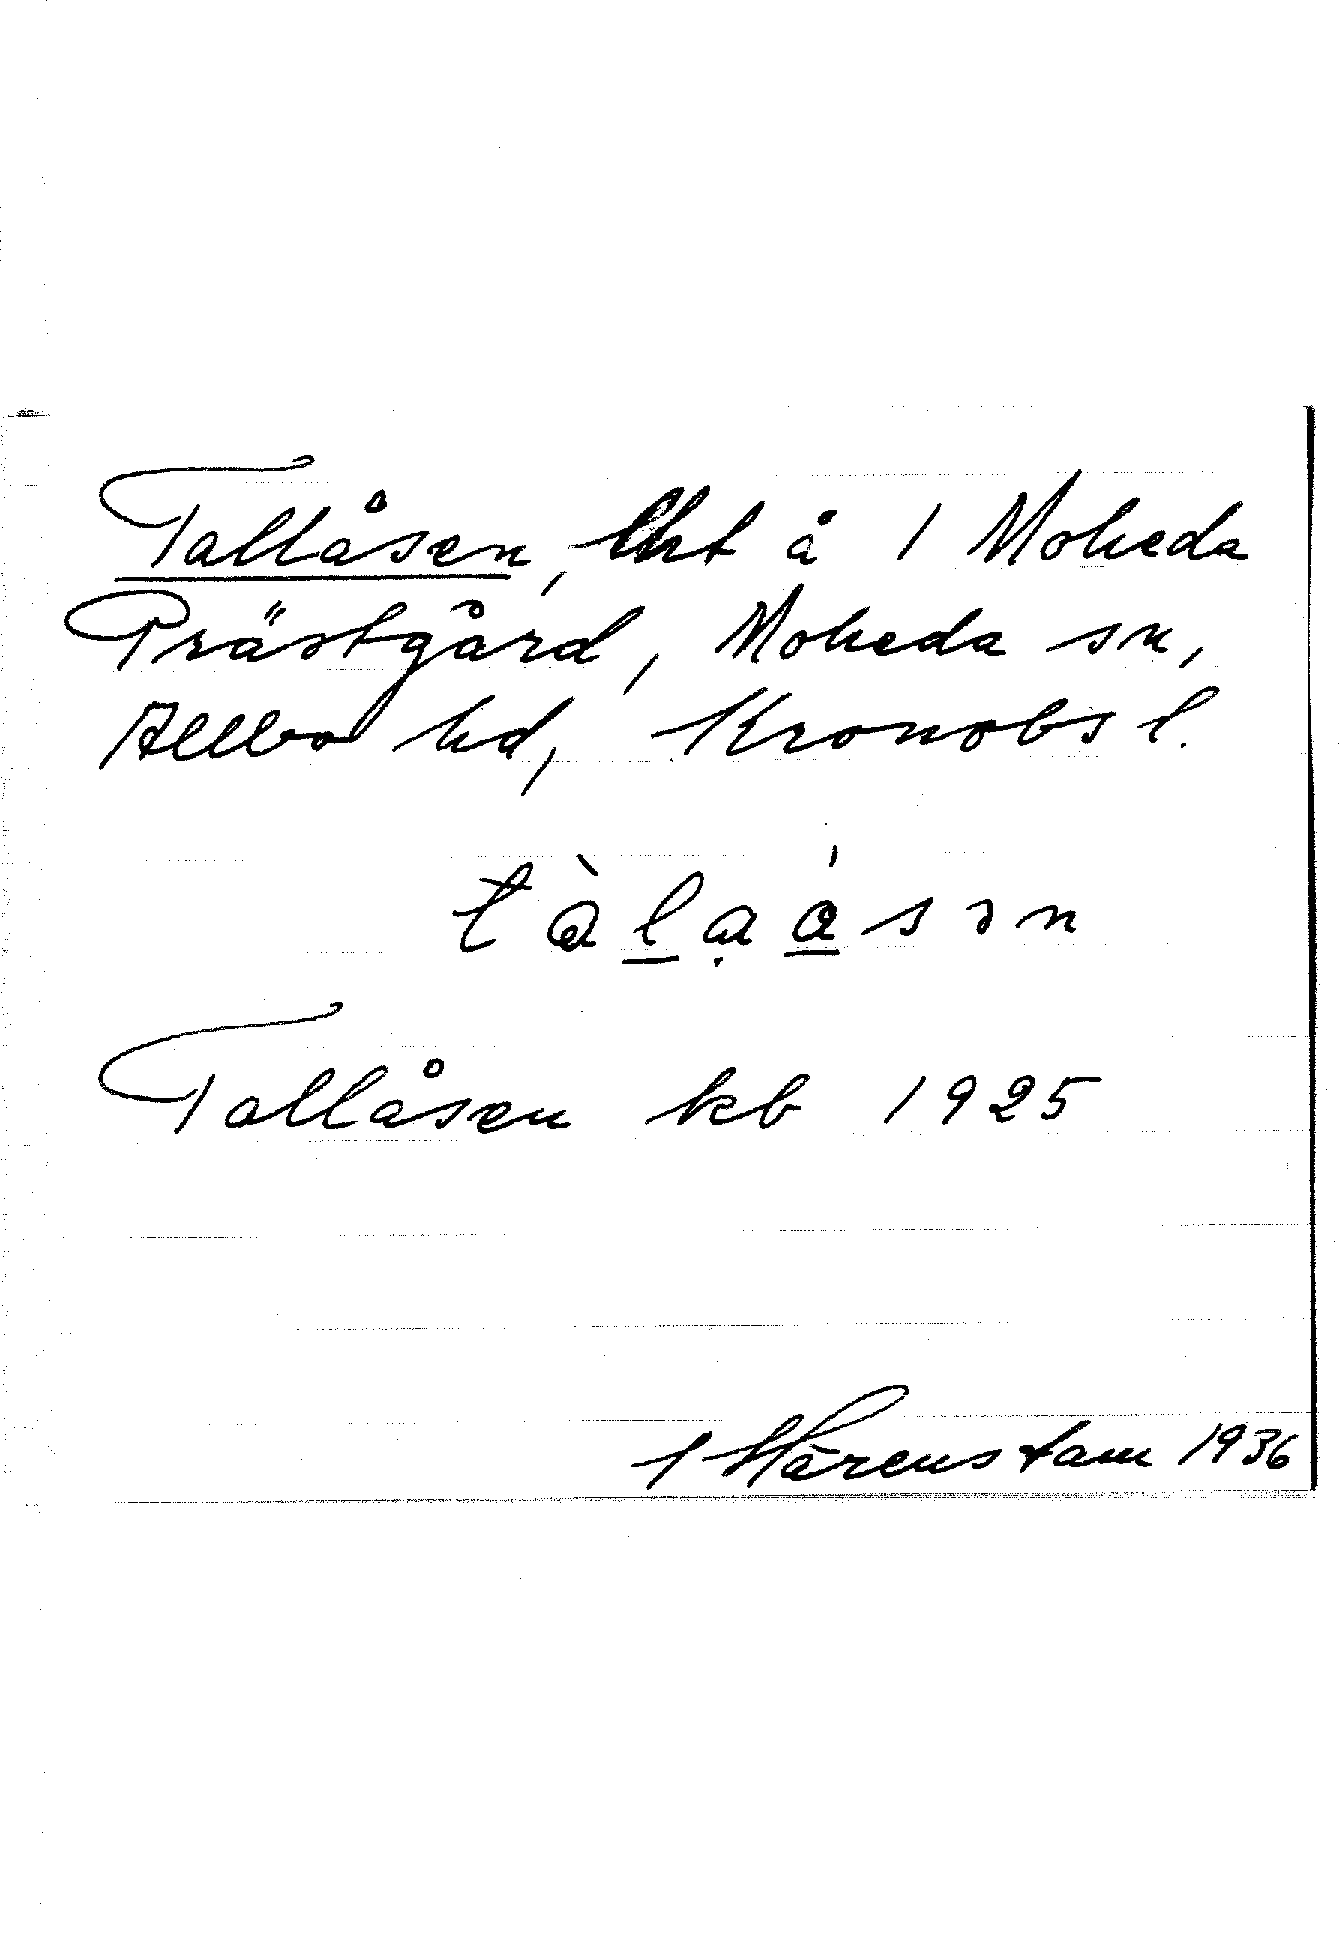 Tallåsen, lht å 1 Moheda
Prästgård, Moheda sn,
Allbo hd, Kronobs l.
tàlaásən
Tallåsen kb 1925
Härenstam 1936